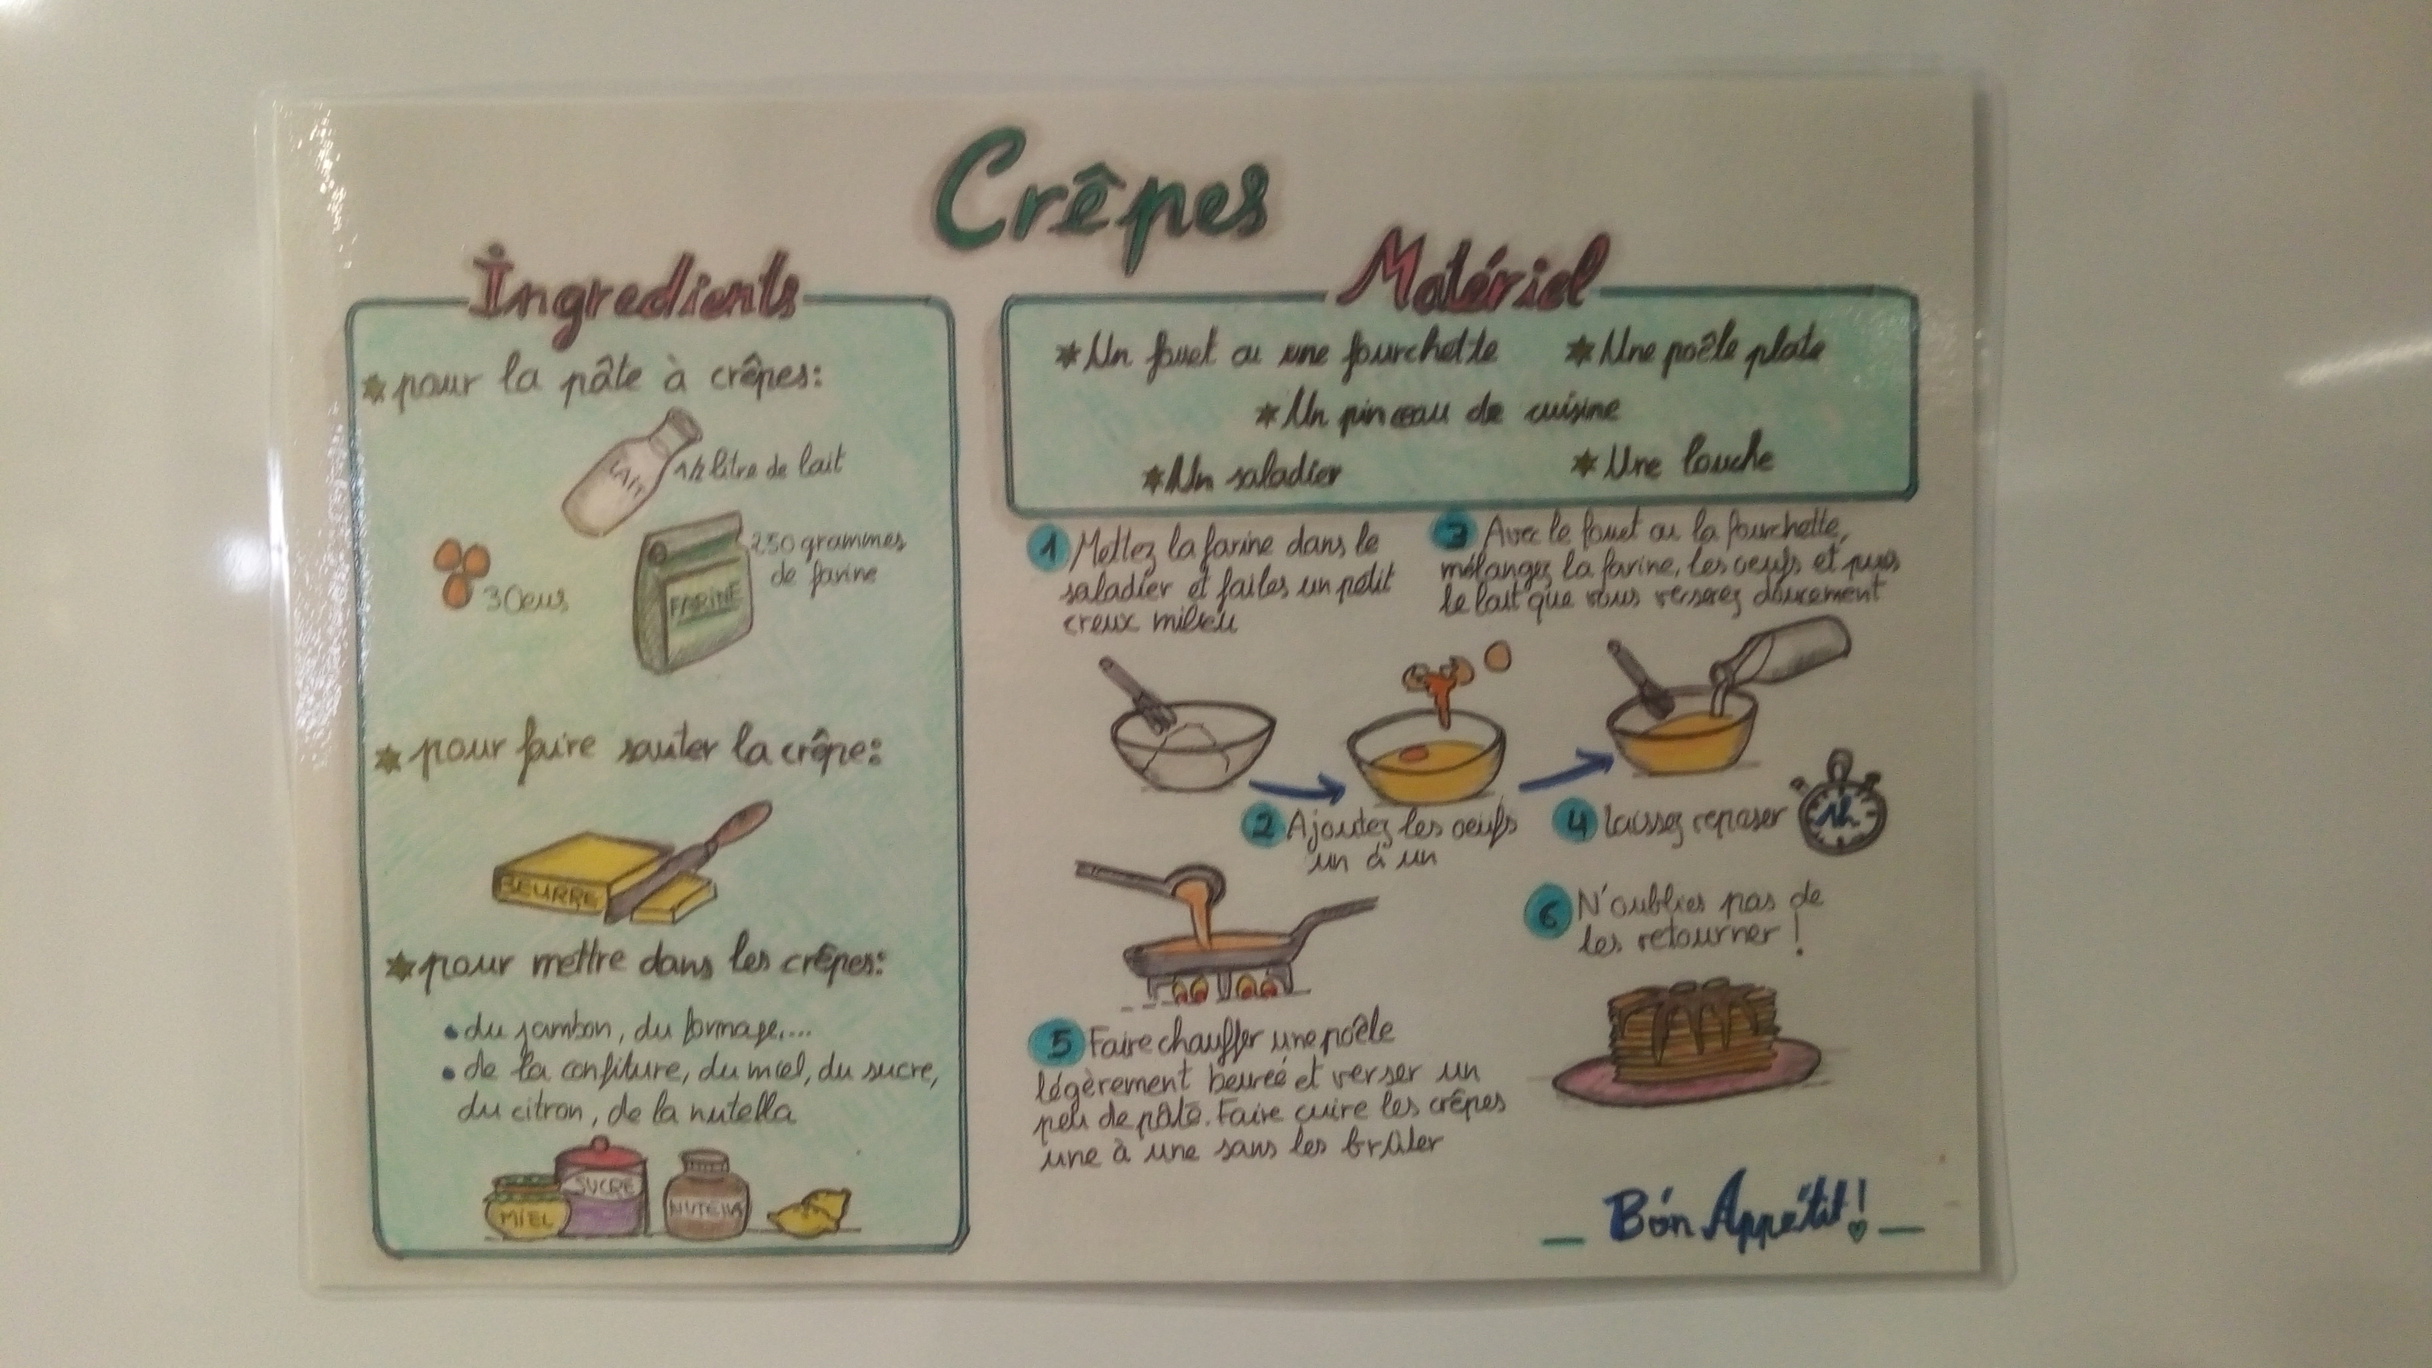 Crêpes
Ingredients
pour la pâte à crêpes:
LAIT
1/2 litre de lait
3 Oeus
250 grammes
de farine
FARINE
pour faire sauter la crêpe:
BEURRE
pour mettre dans les crêpes:
du jambon, du formage,...
de la confiture, du miel, du sucre,
du citron, de la nutella
MIEL
SUCRE
NUTELLA
Matériel
Un fouet ou une fourchette
Une poêle plate
Un pinceau de cuisine
Un saladier
Une louche
1 Mettez la farine dans le
saladier et faites un petit
creux milieu
2 Ajoutez les oeufs
un à un
3 Avec le fouet ou la fourchette,
mélangez la farine, les oeufs et puis
le lait que vous verserez doucement
4 laissez reposer
1h
5 Faire chauffer une poêle
légèrement beureé et verser un
peu de pâte. Faire cuire les crêpes
une à une sans les brûler
6 N'oublies pas de
les retourner !
Bon Appétit!